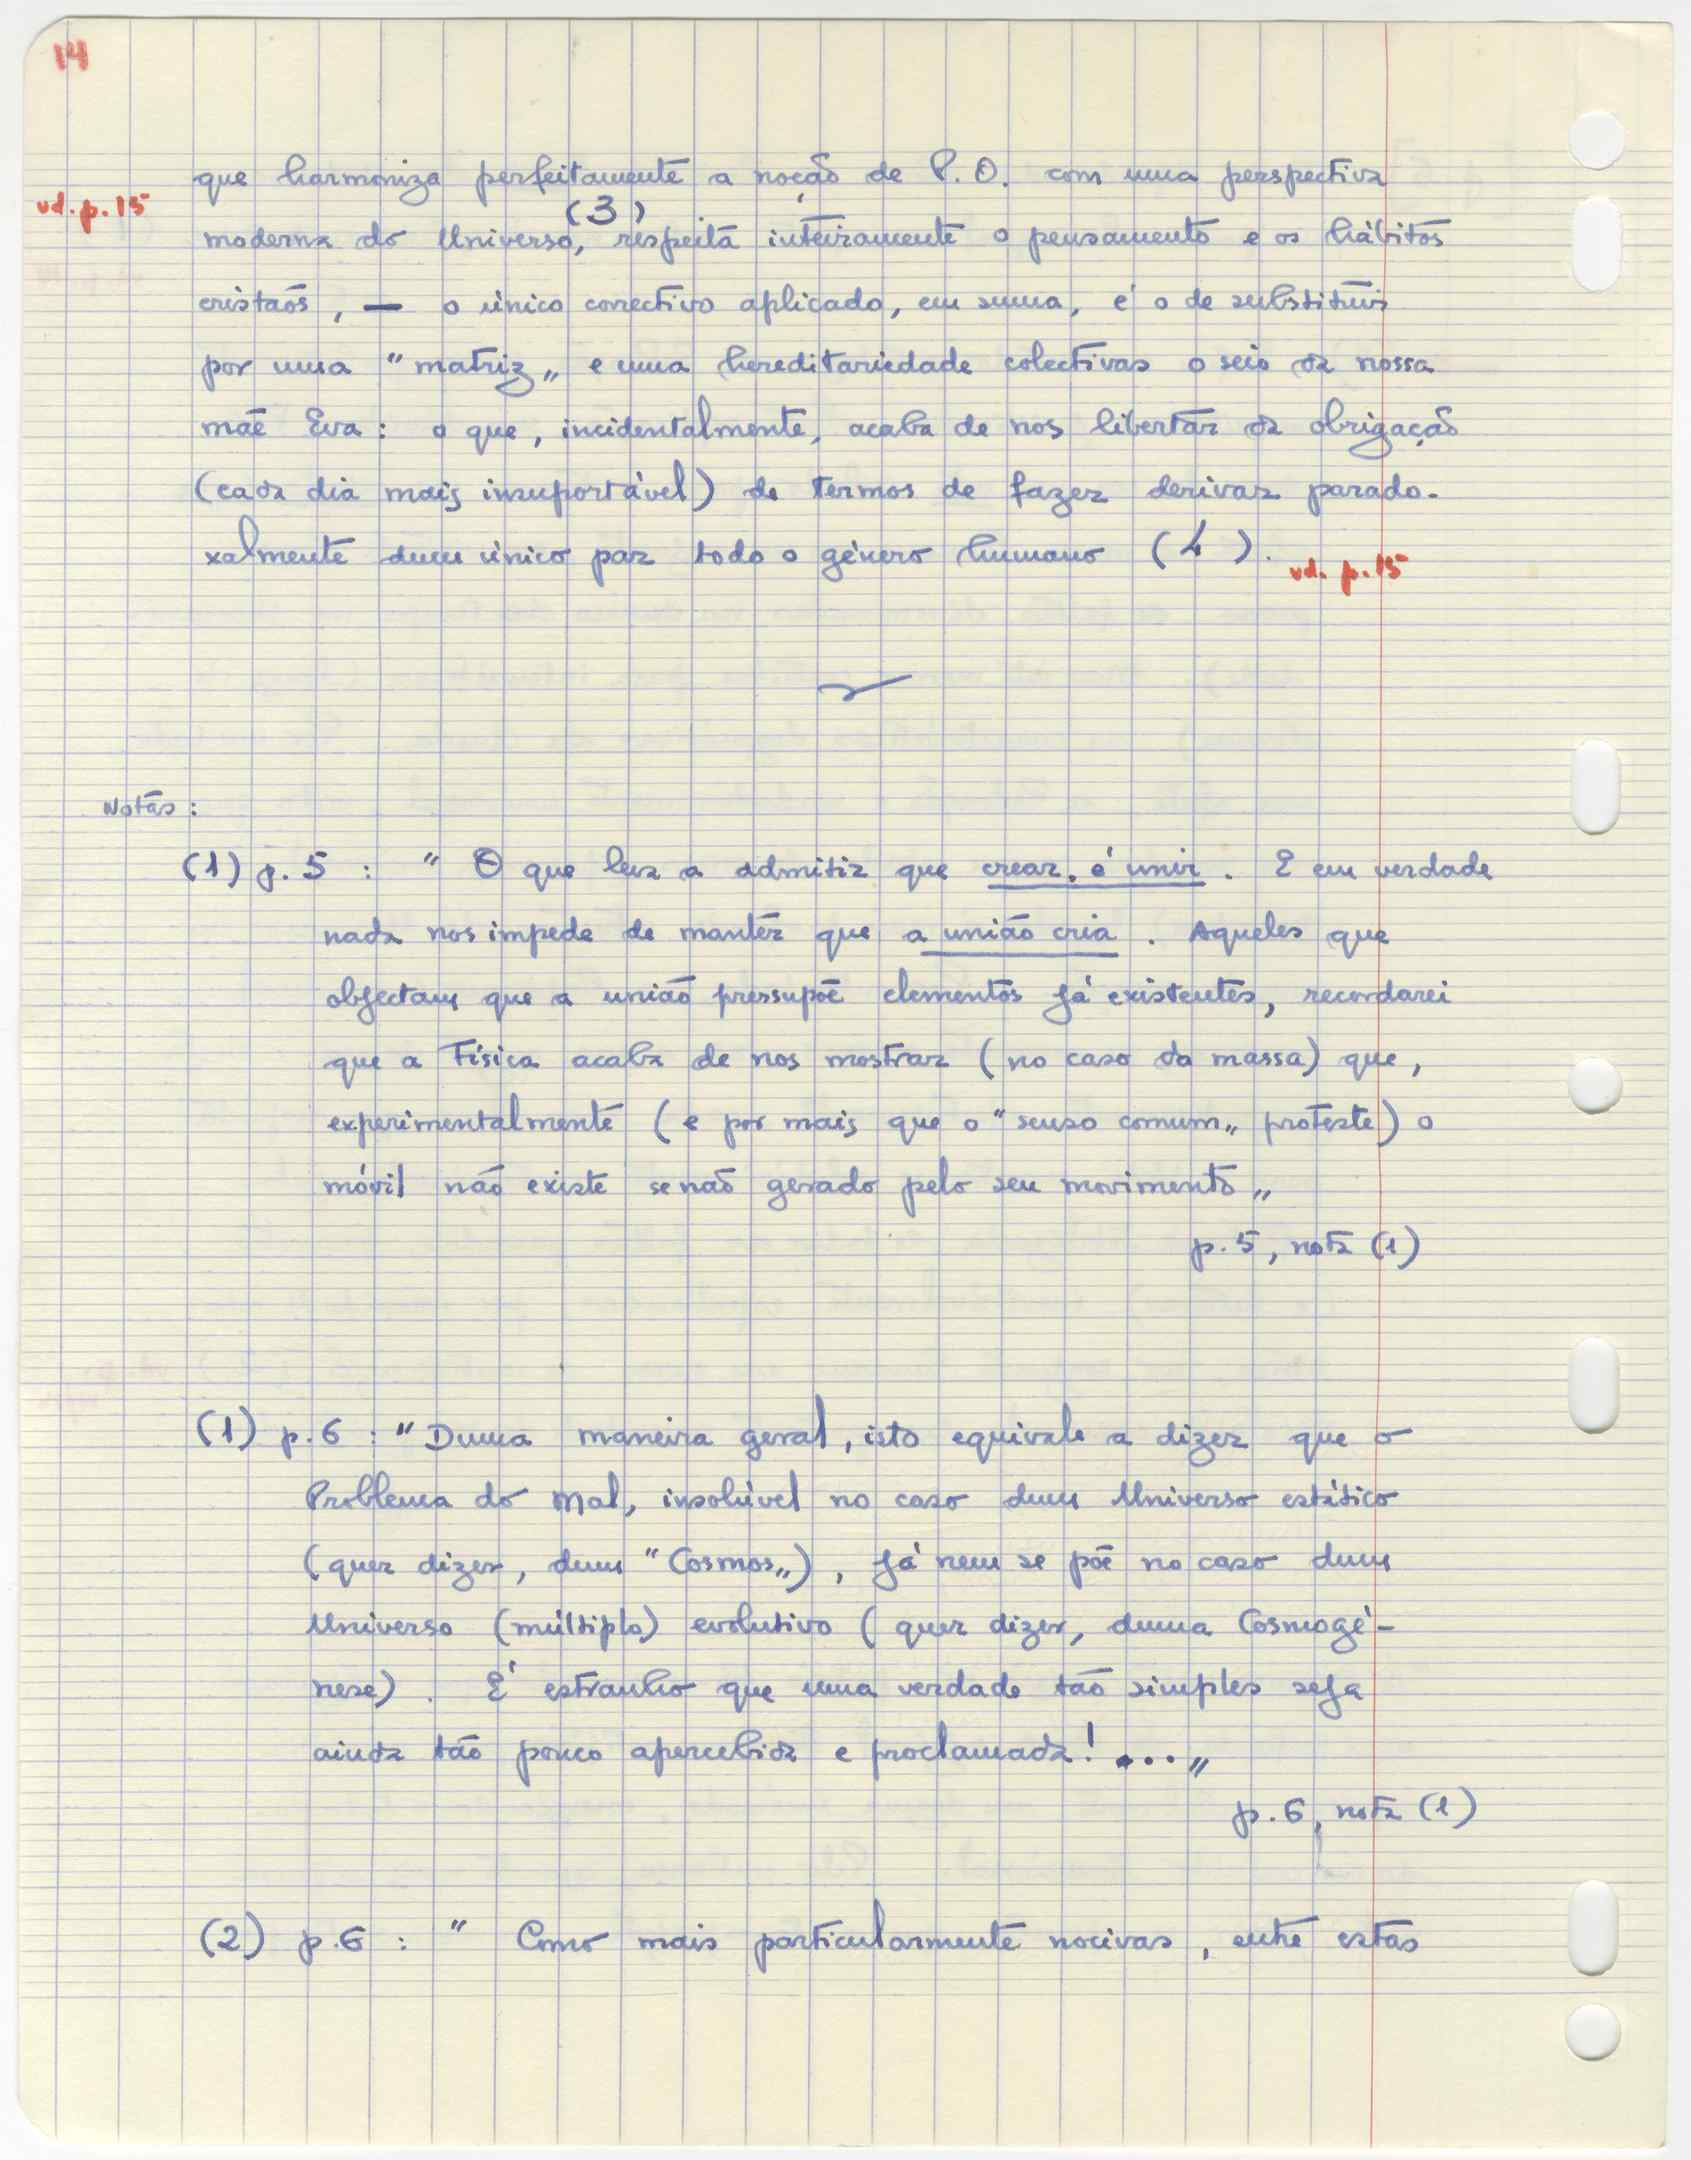 14
que harmoniza perfeitamente a noção de P. O. com uma perspectiva
vd. p. 15
(3)
moderna do Universo, respeita inteiramente o pensamento e os hábitos
cristãos, — o único corrective aplicado, em suma, é o de substituir
por uma "matriz„ e uma hereditariedade colectivas o seio da nossa
mãe Eva: o que, incidentalmente, acaba de nos libertar da obrigação
(cada dia mais insuportável) de termos de fazer derivar parado-
xalmente dum único par todo o género humano (4).
vd. p. 15
Notas:
(1) p. 5 : " O que leva a admitir que crear é unir. E em verdade
nada nos impede de manter que a união cria. Aqueles que
objectam que a união pressupõe elementos já existentes, recordarei
que a Física acaba de nos mostrar (no caso da massa) que,
experimentalmente (e por mais que o "senso comum„ proteste) o
móvil não existe senão gerado pelo seu movimento„
p. 5, nota (1)
(1) p. 6 : "Duma maneira geral, isto equivale a dizer que o
Problema do Mal, insolúvel no caso dum Universo estático
(quer dizer, dum "Cosmos„), já nem se põe no caso dum
Universo (múltiplo) evolutivo (quer dizer, duma Cosmogé-
nese). É estranho que uma verdade tão simples seja
ainda tão pouco apercebida e proclamada! ...„
p. 6, nota (1)
(2) p. 6 : " Como mais particularmente nocivas, entre estas